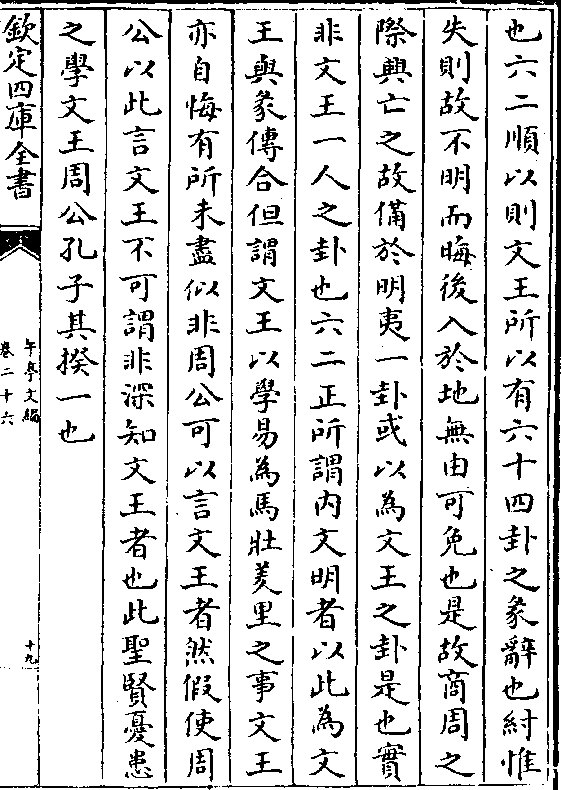 也六二順以則文王所以有六十四卦之彖辭也紂惟
失則故不明而晦後入於地無由可免也是故商周之
際興亡之故備於明夷一卦或以為文王之卦是也實
非文王一人之卦也六二正所謂内文明者以此為文
王與彖傳合但謂文王以學易為馬壯羑里之事文王
亦自悔有所未盡似非周公可以言文王者然假使周
公以此言文王不可謂非深知文王者也此聖賢憂患
之學文王周公孔子其揆一也
欽定四庫全書
午亭文編
卷二十六
十九